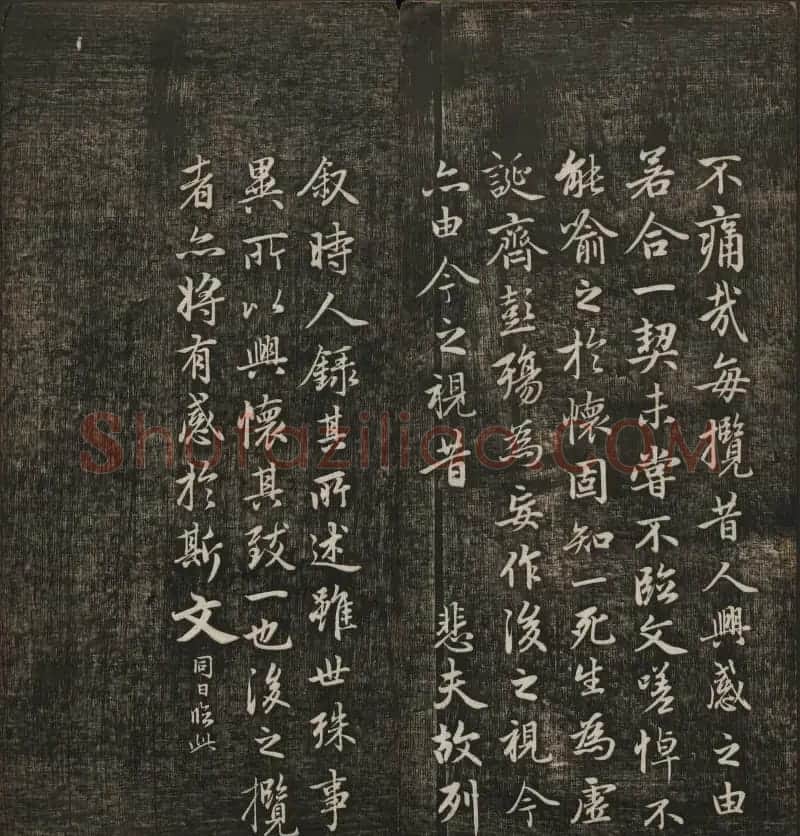 不痛哉每攬昔人興感之由
若合一契未嘗不臨文嗟悼不
能喻之於懷固知一死生為虛
誕齊彭殤為妄作後之視今
亦由今之視昔 悲夫故列
叙時人錄其所述雖世殊事
異所以興懷其致一也後之攬
者亦將有感於斯文
同日臨此
Shufaziliao.COM